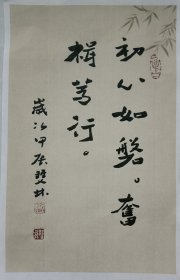 初心如磐。奮
楫篤行。
歲次甲辰